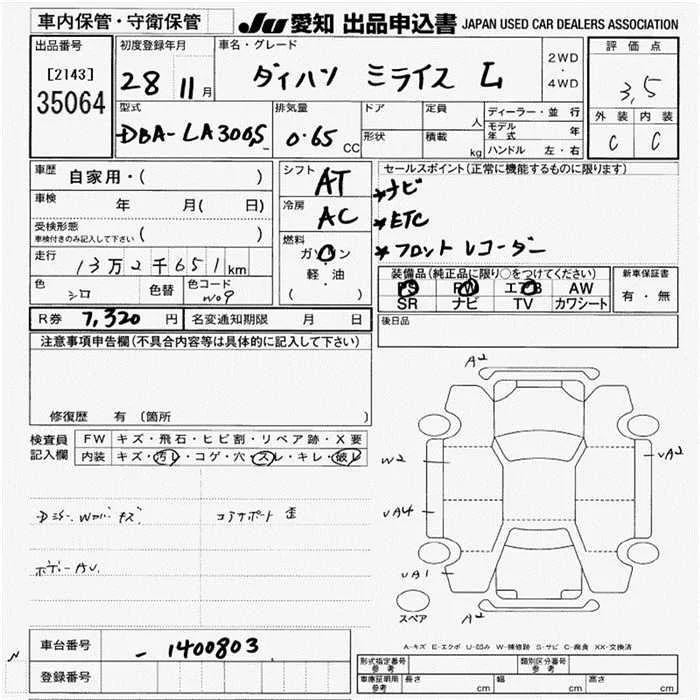 車内保管・守衛保管 JU 愛知 出品申込書 JAPAN USED CAR DEALERS ASSOCIATION
出品番号 初度登録年月 車名・グレード 2WD ・ 4WD 評価点
[2143] 35064 28 11月 ダイハツ ミライス L 3,5
型式 排気量 ドア 定員 人 ディーラー・並行 外装 内装
DBA-LA300S 0.65 CC 形状 積載 kg モデル年式 年 C C
ハンドル 左・右
車歴 自家用・( ) シフト AT セールスポイント(正常に機能するものに限ります)
車検 年 月( 日) 冷房 AC *ナビ
受検形態 車検付きのみ記入して下さい ( ) *ETC
走行 13万2千651km 燃料 ガソリン *フロントレコーダー
軽・油
( )
色 シロ 色替 色コード W09 装備品(純正品に限り○をつけてください) 新車保証書
PS PW エアB AW 有・無
SR ナビ TV カワシート
R券 7,320 円 名変通知期限 月 日 後日品
注意事項申告欄(不具合内容等は具体的に記入して下さい)
修復歴 有(箇所 )
検査員記入欄 FW キズ・飛石・ヒビ割・リペア跡・X要
内装 キズ・汚レ・コゲ・穴・スレ・キレ・破レ
A2
W2 UA2
コアサポート 歪 UA4
UA1
A2
スペア
A-キズ E-エクボ U-凹み W-補修跡 S-サビ C-腐食 XX-交換済
車台番号 - 1400803
登録番号
型式指定番号 参考 類別区分番号 参考
車庫証明用 参考 長さ cm 幅 cm 高さ cm